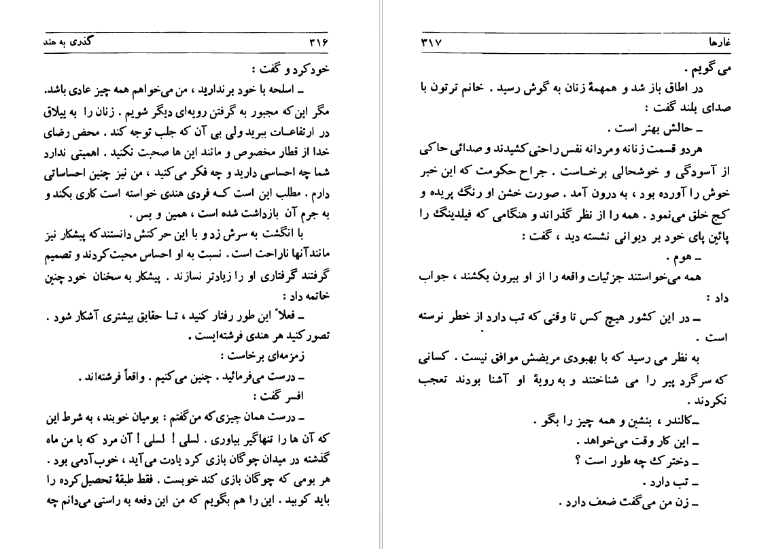 ۳۱۶ گذری به هند
خودکرد و گفت :
ـ اسلحه با خود برندارید ، من می‌خواهم همه چیز عادی باشد.
مگر این‌که مجبور به گرفتن رویه‌ای دیگر شویم . زنان را به ییلاق
در ارتفاعات ببرید ولی بی آن که جلب توجه کند . محض رضای
خدا از قطار مخصوص و مانند این ها صحبت نکنید . اهمیتی ندارد
شما چه احساسی دارید و چه فکر می‌کنید ، من نیز چنین احساساتی
دارم . مطلب این است که فردی هندی خواسته است کاری بکند و
به جرم آن بازداشت شده است ، همین و بس .
با انگشت به سرش زد و با این حرکتش دانستندکه پیشکار نیز
مانند آنها ناراحت است . نسبت به او احساس محبت کردند و تصمیم
گرفتند گرفتاری او را زیادتر نسازند . پیشکار به سخنان خود چنین
خاتمه داد :
ـ فعلاً این طور رفتار کنید ، تا حقایق بیشتری آشکار شود .
تصور کنید هر هندی فرشته‌ایست .
زمزمه‌ای برخاست :
ـ درست می‌فرمائید . چنین می‌کنیم . واقعاً فرشته‌اند .
افسر گفت :
ـ درست همان چیزی‌که من‌گفتم : بومیان خوبند ، به شرط این
که آن ها را تنهاگیر بیاوری . لسلی ! لسلی ! آن مرد که با من ماه
گذشته در میدان چوگان بازی کرد یادت می‌آید ، خوب آدمی بود .
هر بومی که چوگان بازی کند خوبست . فقط طبقهٔ تحصیل‌کرده را
باید کوبید . این را هم بگویم که من این دفعه به راستی می‌دانم چه
غارها ۳۱۷
می گویم .
در اطاق باز شد و همهمهٔ زنان به گوش رسید . خانم ترتون با
صدای بلند گفت :
ـ حالش بهتر است .
هردو قسمت زنانه و مردانه نفس راحتی‌کشیدند و صدائی حاکی
از آسودگی و خوشحالی برخاست . جراح حکومت که این خبر
خوش را آورده بود ، به درون آمد . صورت خشن او رنگ پریده و
کج خلق می‌نمود . همه را از نظر گذراند و هنگامی که فیلدینگ را
پائین پای خود بر دیوانی نشسته دید ، گفت :
ـ هوم .
همه می‌خواستند جزئیات واقعه را از او بیرون بکشند ، جواب
داد :
ـ در این کشور هیچ کس تا وقتی که تب دارد از خطر نرسته
است .
به نظر می رسید که با بهبودی مریضش موافق نیست . کسانی
که سرگرد پیر را می شناختند و به رویهٔ او آشنا بودند تعجب
نکردند .
ـ‌کالندر ، بنشین و همه چیز را بگو .
ـ این کار وقت می‌خواهد .
ـ دخترک چه طور است ؟
ـ تب دارد .
ـ زن من می‌گفت ضعف دارد .